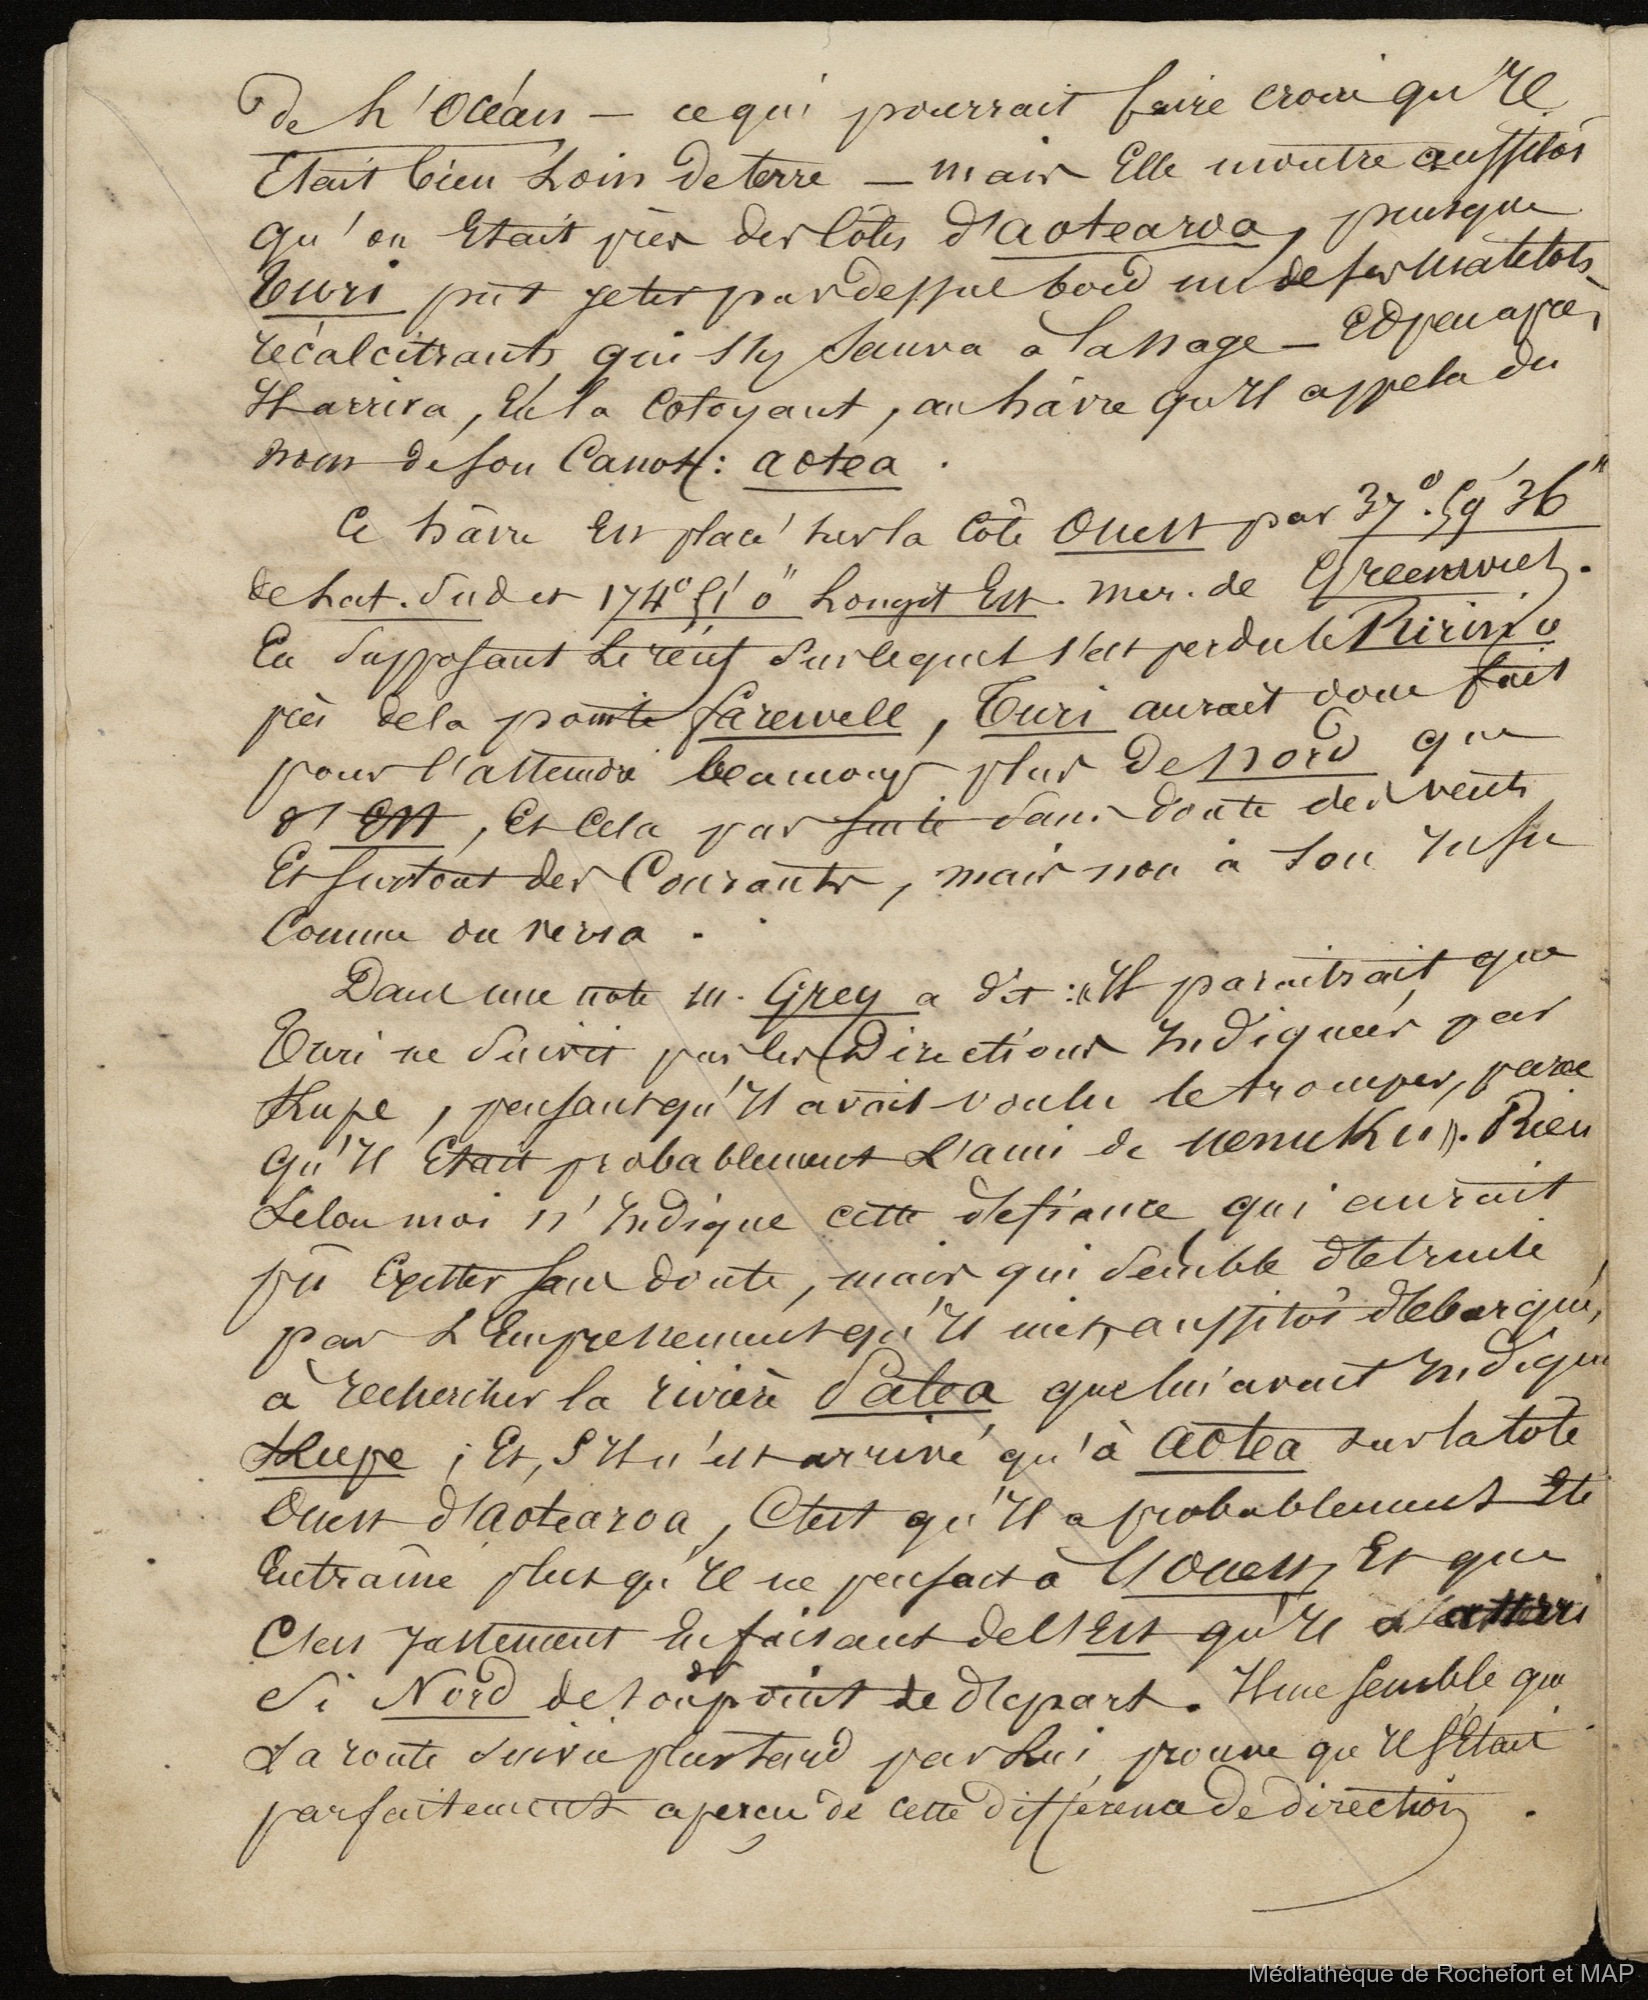 de L'Océan — ce qui pourrait faire croire qu'Il
Etait bien Loin de terre — mais Elle montre aussitôt
qu'on Etait près des Côtes d'aotearoa, puisque
Turi put jeter par dessus bord un de ses matelots
récalcitrants qui s'y sauva à la nage — Et peu après
Il arriva, En la Cotoyant, au hâvre qu'Il appela du
nom de son Canot: aotea.
Ce hâvre Est placé sur la Côte Ouest par 37°.59'36"
de Lat. Sud et 174°51'0" Longit Est. Mer. de Greenwich.
En supposant Le récif sur lequel s'est perdu le Ririno
près de la pointe farewell, Turi aurait donc fait
pour l'atteindre beaucoup plus de nord que
d'Est, Et Cela par suite sans doute des vents
Et surtout des Courants, mais non à son Insu
Comme on verra.
Dans une note M. Grey a dit: «Il paraitrait que
Turi ne suivit pas les Directions Indiquées par
Kupe, pensant qu'Il avait voulu le tromper, parce
qu'Il Etait probablement L'ami de uenuku». Rien
Selon moi n'Indique cette défiance qui aurait
pû Exister sans doute, mais qui semble détruite
par L'Empressement qu'Il mit, aussitôt débarqué,
à rechercher la rivière Patea que lui avait Indiqué
Kupe; Et, s'Il n'est arrivé qu'à aotea sur la côte
Ouest d'aotearoa, C'est qu'Il a probablement Eté
Entraîné plus qu'Il ne pensait à L'Ouest, Et que
C'est justement En faisant de l'Est qu'Il a atterri
si Nord de son point de départ. Il me semble que
La route suivie plus tard par Lui prouve qu'Il s'Etait
parfaitement aperçu de cette différence de direction.
Médiathèque de Rochefort et MAP